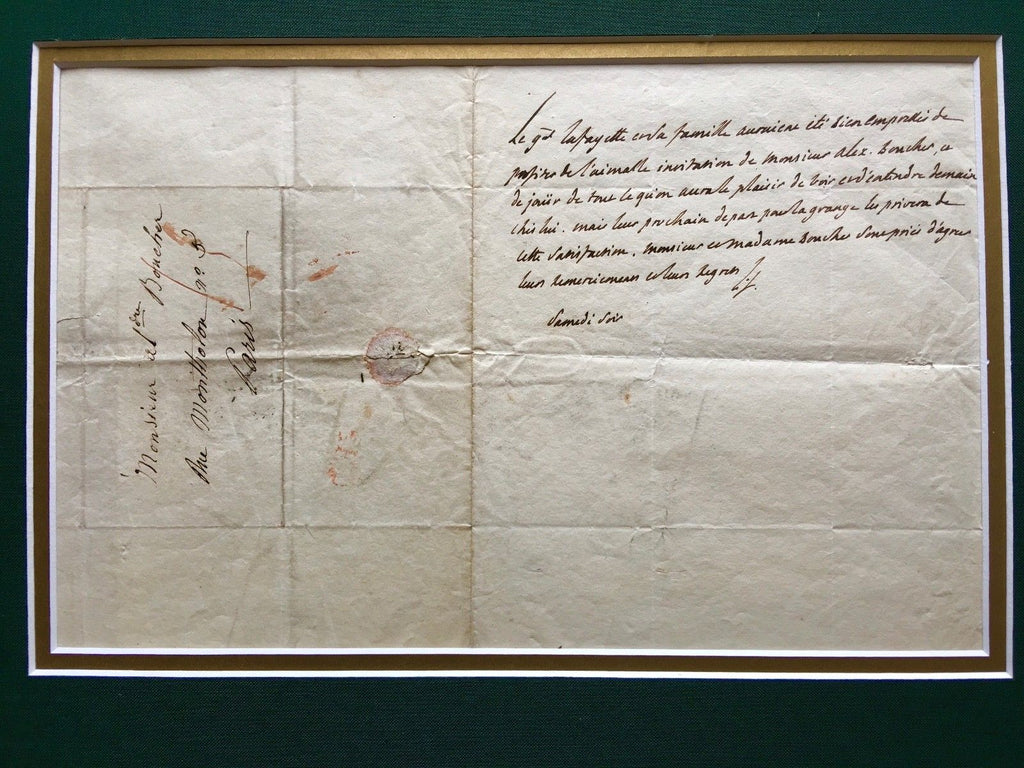 Le gal Lafayette et sa famille auroient été bien empressés de
profiter de l'aimable invitation de Monsieur Alex. Boucher, et
de joüir de tout ce qu'on aura le plaisir de voir et d'entendre demain
chés lui. mais leur prochain depart pour la grange les privera de
cette satisfaction. Monsieur et madame Boucher sont priés d'agréer
leurs remerciemens et leurs regrets
Samedi soir
Monsieur al dre Boucher
Rue Montholon no. 8
Paris